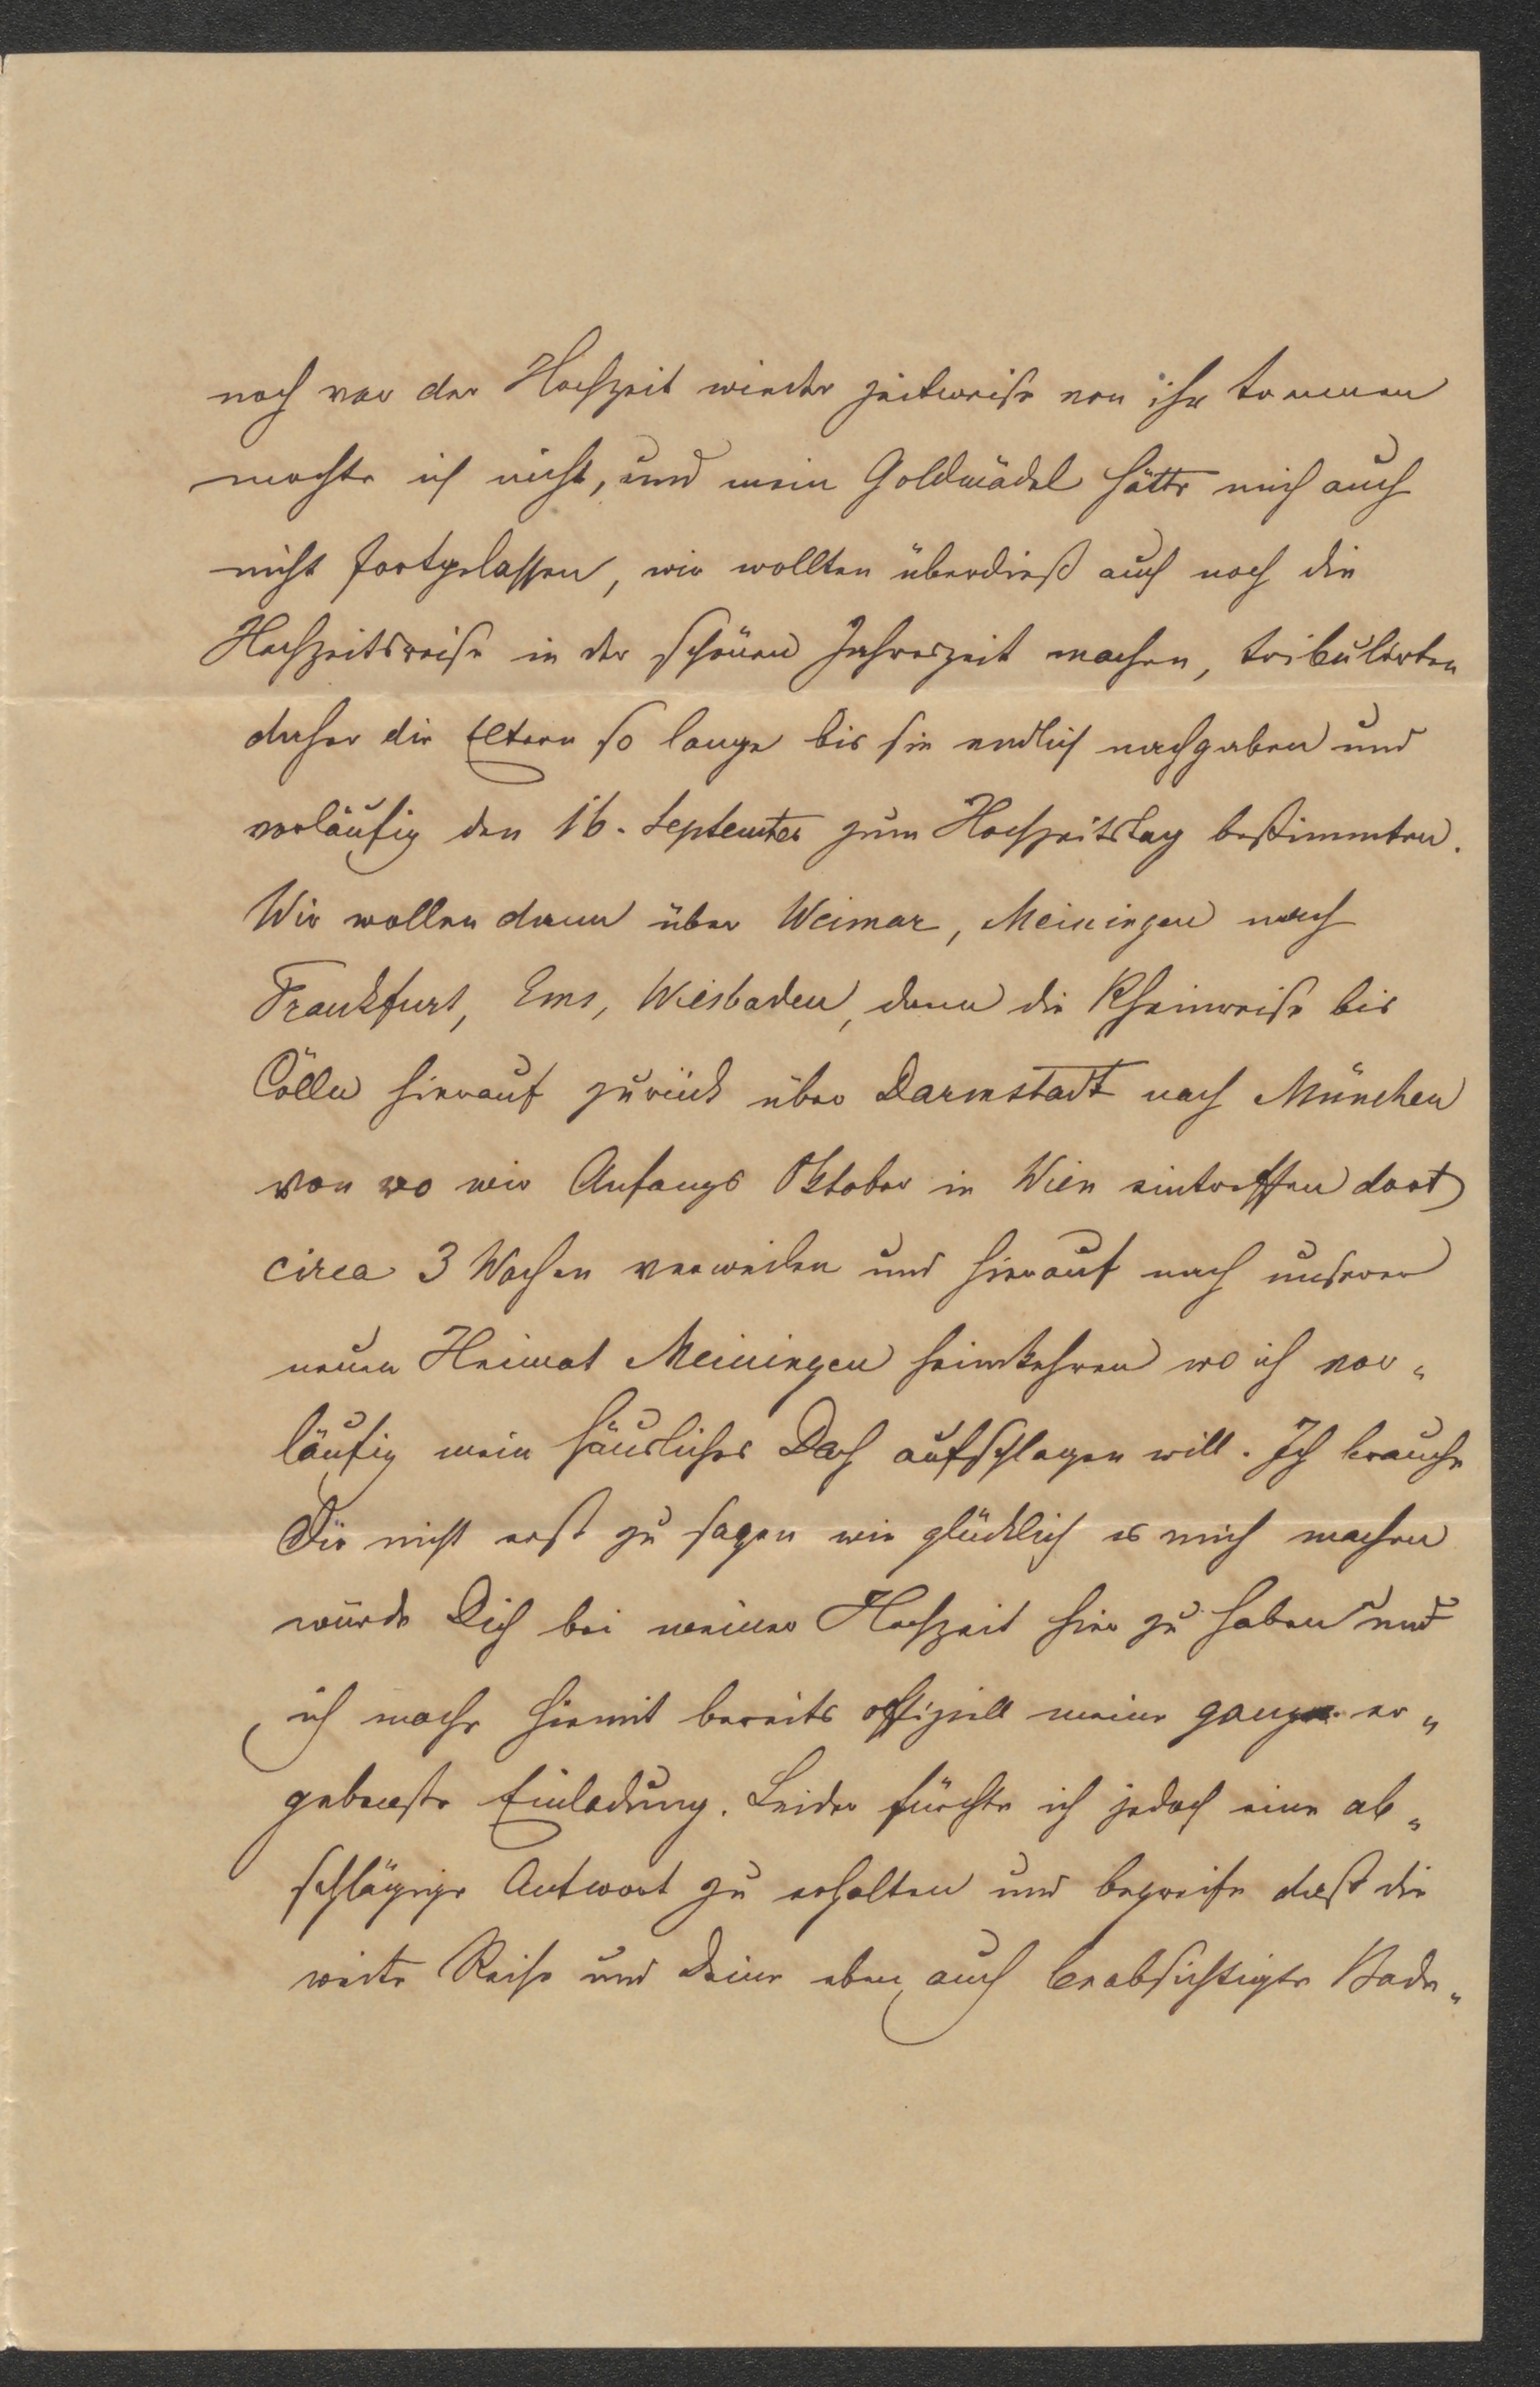 noch vor der Hochzeit wieder zeitweise von ihr trennen
mochte ich nicht, und mein Goldmädel hätte mich auch
nicht fortgelassen, wir wollten überdieß auch noch die
Hochzeitsreise in der schönen Jahreszeit machen, tribulirten
daher die Eltern so lange bis sie endlich nachgaben und
vorläufig den 16. September zum Hochzeitstag bestimmten.
Wir wollen dann über Weimar, Meiningen nach
Frankfurt, Ems, Wiesbaden, dann die Rheinreise bis
Cölln hierauf zurück über Darmstadt nach München
von wo wir Anfangs Oktober in Wien eintreffen dort
circa 3 Wochen verweilen und hierauf nach unserer
neuen Heimat Meiningen heimkehren wo ich vor„
läufig mein häusliches Dach aufschlagen will. Ich brauche
Dir nicht erst zu sagen wie glücklich es mich machen
würde Dich bei meiner Hochzeit hier zu haben und
ich mache hiemit bereits offiziell meine ganz er„
gebenste Einladung. Leider fürchte ich jedoch eine ab„
schlägige Antwort zu erhalten und begreife daß die
weite Reise und Deine eben auch beabsichtigte Bade„